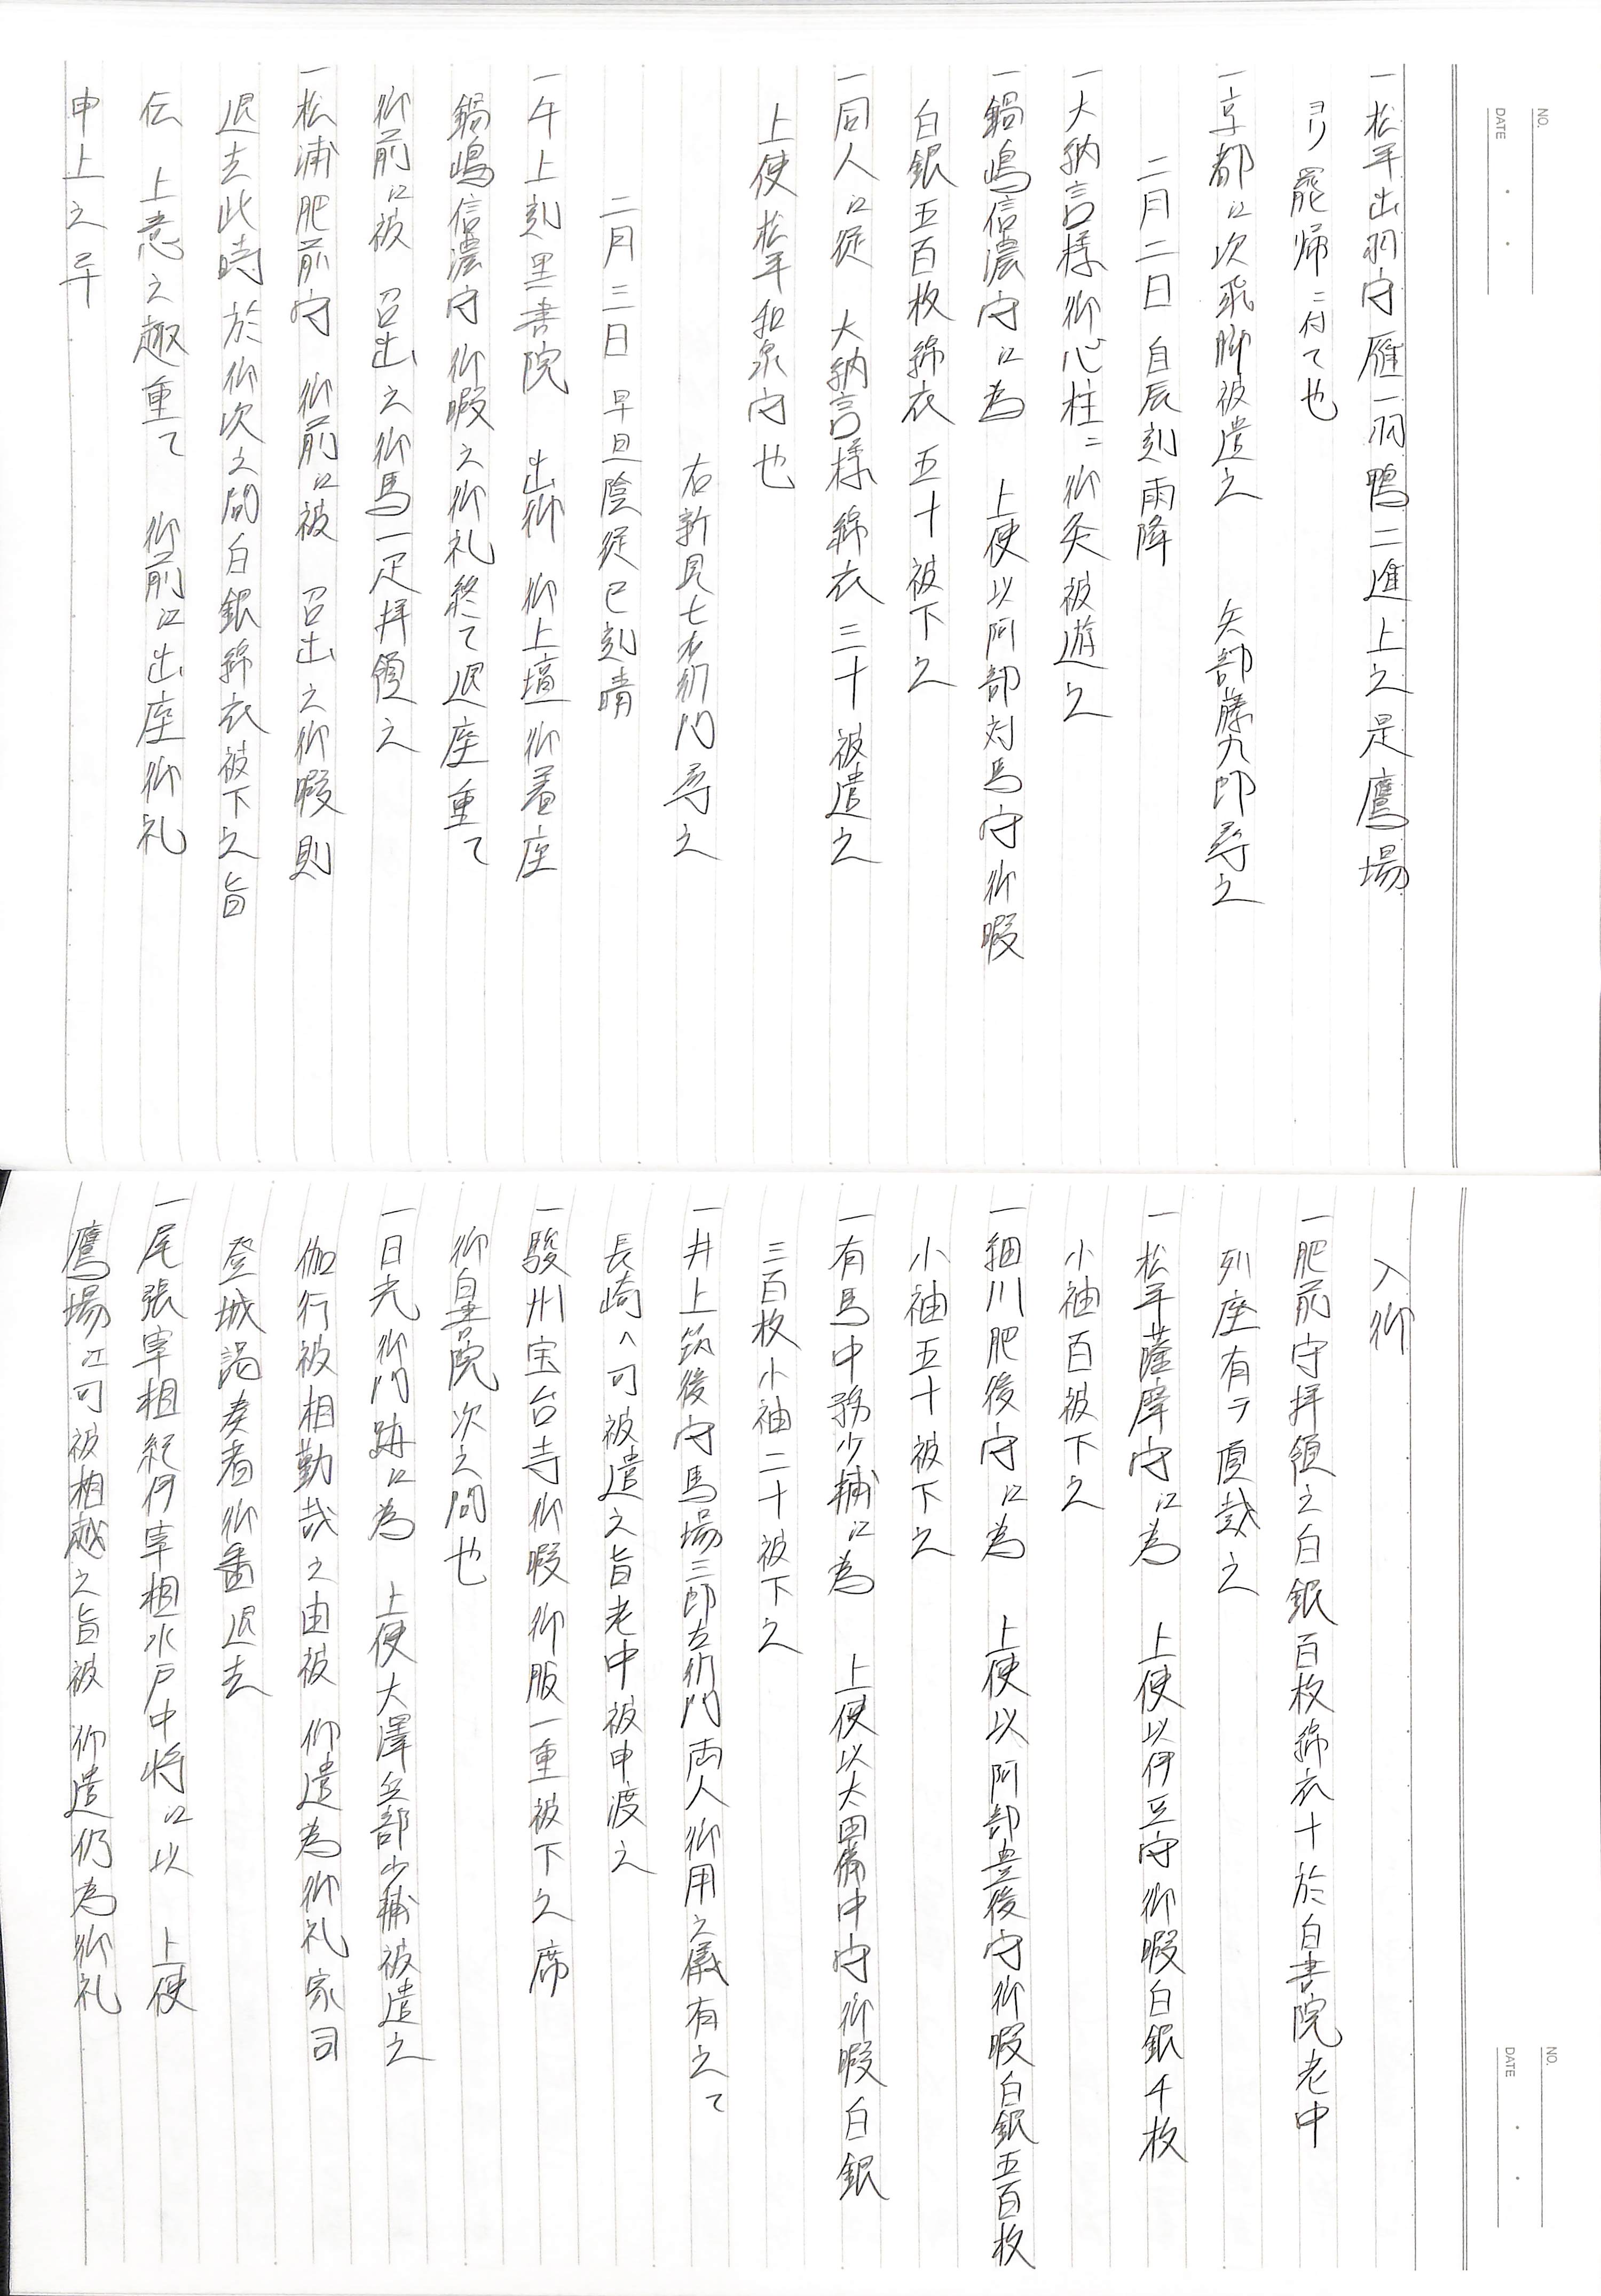 NO.
DATE
一松平出羽守雁一羽鴨二進上之是鷹場
ヨリ罷帰ニ付て也
一京都江次飛脚被遣之　矢部藤九郎尋之
二月二日　自辰刻雨降
一大納言様御心柱ニ御灸被遊之
鍋嶋信濃守江為　上使以阿部対馬守御暇
白銀五百枚綿衣五十被下之
一同人江従　大納言様綿衣三十被遣之
上使松平和泉守也
右新見七右衛門尋之
二月三日　早旦陰従巳刻晴
一午上刻黒書院　出御　御上壇御着座
鍋嶋信濃守御暇之御礼終て退座重て
御前江被　召出之御馬一疋拝領之
一松浦肥前守　御前江被　召出之御暇則
退去此時於御次之間白銀綿衣被下之旨
伝　上意之趣重て　御前江出座御礼
申上之早
NO.
DATE
入御
一肥前守拝領之白銀百枚綿衣十於白書院老中
列座有テ頂戴之
一松平薩摩守江為　上使以伊豆守御暇白銀千枚
小袖百被下之
一細川肥後守江為　上使以阿部豊後守御暇白銀五百枚
小袖五十被下之
一有馬中務少輔江為　上使以太田備中守御暇白銀
三百枚小袖二十被下之
一井上筑後守馬場三郎左衛門両人御用之儀有之て
長崎へ可被遣之旨老中被申渡之
一駿州宝台寺御暇御服一重被下之席
御白書院次之間也
一日光御門跡江為　上使大澤兵部少輔被遣之
伽行被相勤哉之由被　仰遣為御礼家司
登城謁奏者御番退去
一尾張宰相紀伊宰相水戸中将江以　上使
鷹場江可被相越之旨被　仰遣仍為御礼